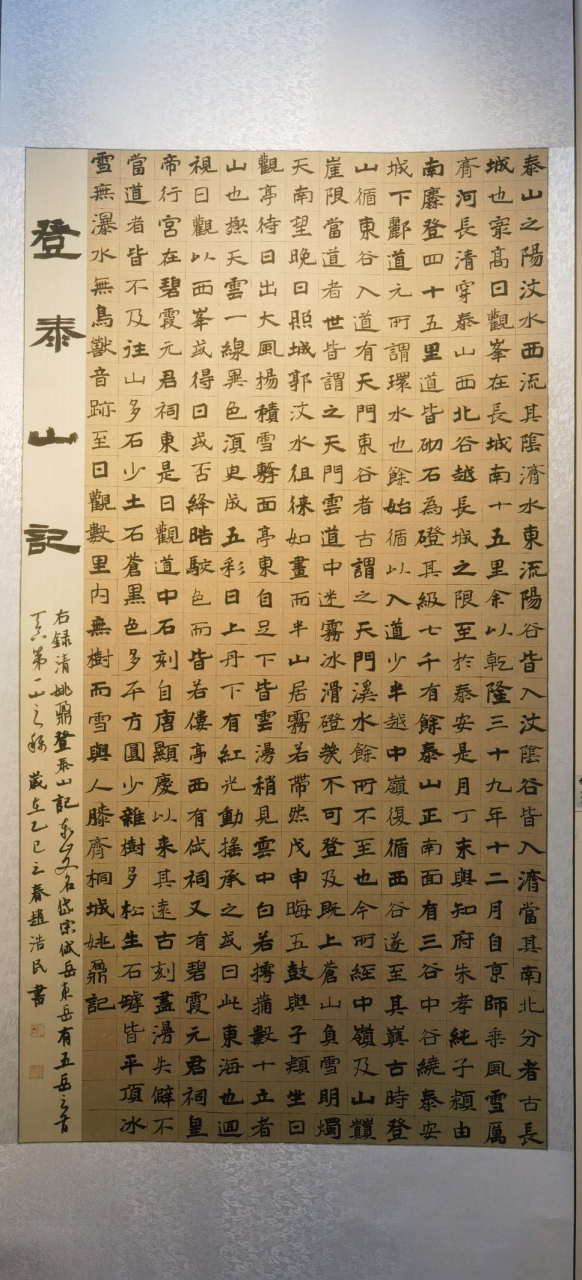 泰山之陽汶水西流其陰濟水東流陽谷皆入汶陰谷皆入濟當其南北分者古長
城也寂高日觀峯在長城南十五里余以乾隆三十九年十二月自京師乘風雪厲
齊河長清穿泰山西北谷越長城之限至於泰安是月丁未與知府朱孝純子潁由
南麓登四十五里道皆砌石為磴其級七千有餘泰山正南面有三谷中谷繞泰安
城下酈道元所謂環水也餘始循以入道少半越中嶺復循西谷遂至其巔古時登
山循東谷入道有天門東谷者古謂之天門溪水餘所不至也今所經中嶺及山巔
崖限當道者世皆謂之天門雲道中迷霧冰滑磴幾不可登及既上蒼山負雪明燭
天南望晚日照城郭汶水徂徠如畫而半山居霧若帶然戊申晦五鼓與子潁坐日
觀亭待日出大風揚積雪擊面亭東自足下皆雲漫稍見雲中白若摴蒱數十立者
山也極天雲一線異色須臾成五彩日上丹下有紅光動搖承之或曰此東海也迴
視日觀以西峯或得日或否絳皓駁色而皆若僂亭西有岱祠又有碧霞元君祠皇
帝行宮在碧霞元君祠東是日觀道中石刻自唐顯慶以來其遠古刻盡漫失僻不
當道者皆不及往山多石少土石蒼黑色多平方圓少雜樹多松生石罅皆平頂冰
雪無瀑水無鳥獸音跡至日觀數里內無樹而雪與人膝齊桐城姚鼐記
登泰山記
右錄清姚鼐登泰山記泰山又名岱宗岱岳東岳有五岳之首
第一山之稱歲在乙巳之春趙浩民書